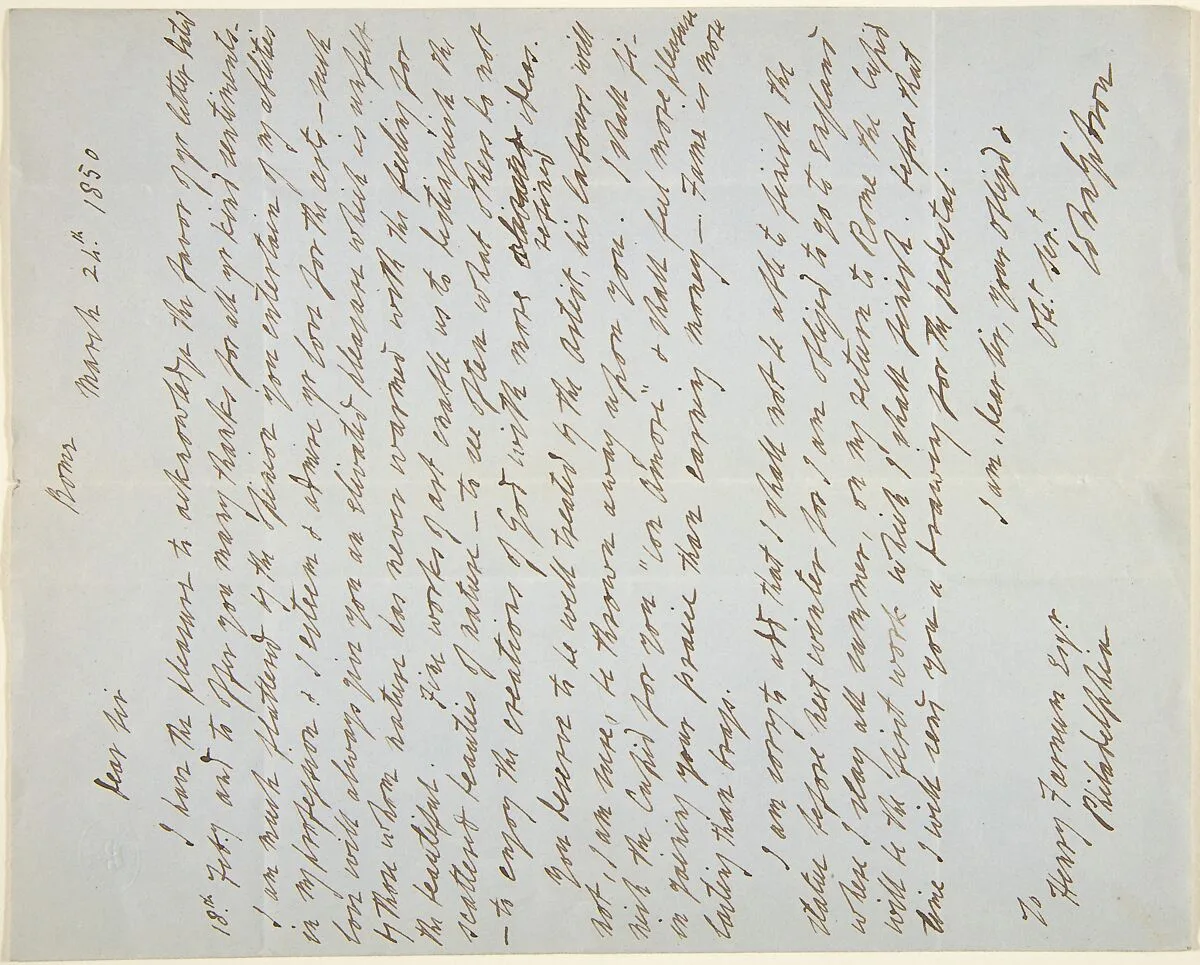 Rome
March 24.th 1850
Dear Sir
I have the pleasure to acknowledge the favor of yr letter dated
18th. Feby and to offer you many thanks for all yr kind sentiments.
I am much flattered by the opinion you entertain of my abilities
in my profession & I esteem & admire yr love for the arts – such
love will always give you an elivated pleasure which is unfelt
by those whom nature has never warmed with the feeling for
the beautiful. Fine works of art enable us to distinguish the
scattered beauties of nature – to see often what others do not
– to enjoy the creations of God with more refined ideas.
You deserve to be well treated by the Artist, his labours will
not, I am sure be thrown away upon you. I shall fi-
nish the Cupid for you "con Amore" & shall feel more pleasure
in gaining your praise than earning money – Fame is more
lasting than brass.
I am sorry to add that I shall not be able to finish the
statue before next winter for I am obliged to go to England
where I stay all summer, on my return to Rome the Cupid
will be the first work which I shall finish. before that
time I will send you a drawing for the pedestal.
I am, dear Sir, your obliged &
Obt. Sert.
John Gibson
To
Henry Farnum Esqr.
Philadelphia